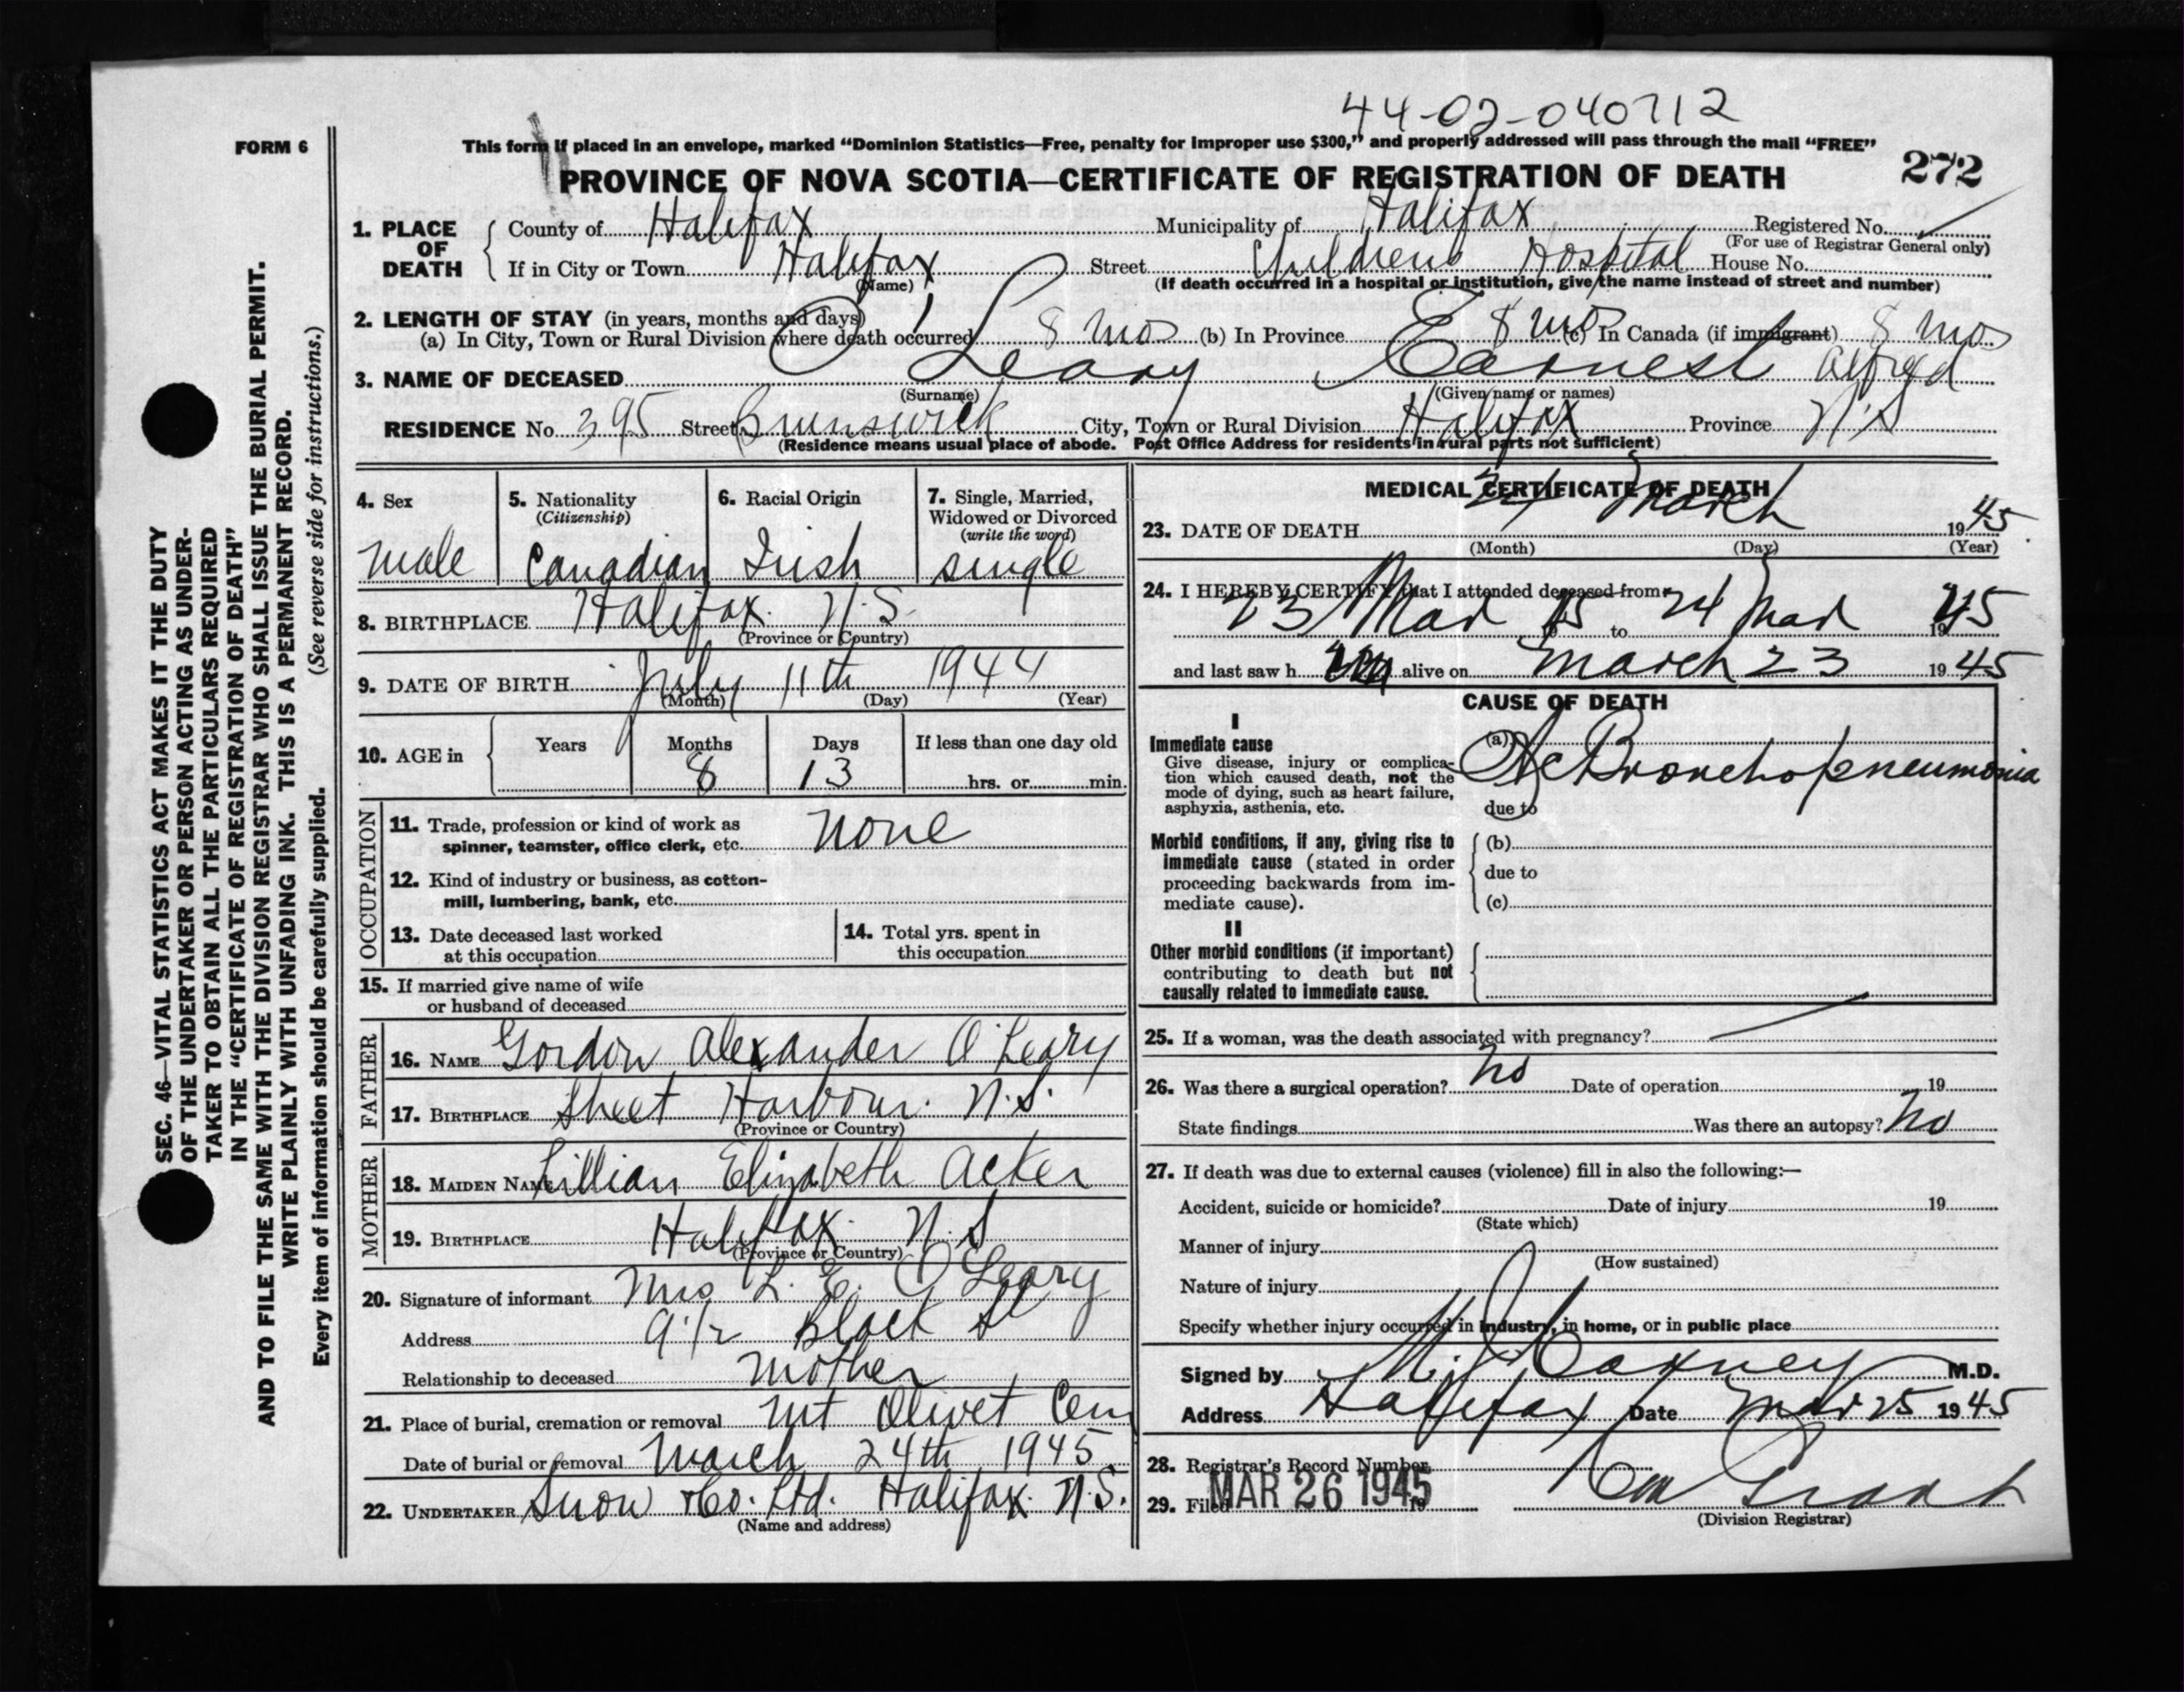 44-02-040712
FORM 6
This form if placed in an envelope, marked “Dominion Statistics—Free, penalty for improper use $300,” and properly addressed will pass through the mail “FREE”
272
PROVINCE OF NOVA SCOTIA—CERTIFICATE OF REGISTRATION OF DEATH
1. PLACE OF DEATH
County of Halifax Municipality of Halifax Registered No.
(For use of Registrar General only)
If in City or Town Halifax Street Childrens Hospital House No.
(Name) (If death occurred in a hospital or institution, give the name instead of street and number)
2. LENGTH OF STAY (in years, months and days)
(a) In City, Town or Rural Division where death occurred 8 mos (b) In Province 8 mos (c) In Canada (if immigrant) 8 mos
3. NAME OF DECEASED O'Leary Earnest Alfred
(Surname) (Given name or names)
RESIDENCE No. 395 Street Brunswick City, Town or Rural Division Halifax Province N.S
(Residence means usual place of abode. Post Office Address for residents in rural parts not sufficient)
4. Sex
male
5. Nationality
(Citizenship)
Canadian
6. Racial Origin
Irish
7. Single, Married,
Widowed or Divorced
(write the word)
single
8. BIRTHPLACE Halifax. N.S.
(Province or Country)
9. DATE OF BIRTH July 11th 1944
(Month) (Day) (Year)
10. AGE in Years Months Days If less than one day old
8 13 hrs. or min.
OCCUPATION
11. Trade, profession or kind of work as
spinner, teamster, office clerk, etc. none
12. Kind of industry or business, as cotton-
mill, lumbering, bank, etc.
13. Date deceased last worked
at this occupation
14. Total yrs. spent in
this occupation
15. If married give name of wife
or husband of deceased
FATHER
16. NAME Gordon Alexander O'Leary
17. BIRTHPLACE Sheet Harbour. N.S.
(Province or Country)
MOTHER
18. MAIDEN NAME Lillian Elizabeth Acker
19. BIRTHPLACE Halifax. N.S
(Province or Country)
20. Signature of informant Mrs L. E. O'Leary
Address 9 1/2 Black St
Relationship to deceased mother
21. Place of burial, cremation or removal Mt Olivet Cem
Date of burial or removal March 24th 1945
22. UNDERTAKER Snow & Co. Ltd. Halifax. N.S.
(Name and address)
MEDICAL CERTIFICATE OF DEATH
23. DATE OF DEATH 24 March 1945
(Month) (Day) (Year)
24. I HEREBY CERTIFY that I attended deceased from
23 Mar 1945 to 24 Mar 1945
and last saw h im alive on March 23 1945
CAUSE OF DEATH
I
Immediate cause
Give disease, injury or complica-
tion which caused death, not the
mode of dying, such as heart failure,
asphyxia, asthenia, etc.
(a) Ac Bronchopneumonia
due to
Morbid conditions, if any, giving rise to
immediate cause (stated in order
proceeding backwards from im-
mediate cause).
(b)
due to
(c)
II
Other morbid conditions (if important)
contributing to death but not
causally related to immediate cause.
25. If a woman, was the death associated with pregnancy?
26. Was there a surgical operation? no Date of operation 19
State findings Was there an autopsy? no
27. If death was due to external causes (violence) fill in also the following:—
Accident, suicide or homicide? Date of injury 19
(State which)
Manner of injury
(How sustained)
Nature of injury
Specify whether injury occurred in industry, in home, or in public place
Signed by M.D.
Address Halifax Date Mar 25 1945
28. Registrar's Record Number
29. Filed MAR 26 1945 19
Grant
(Division Registrar)
SEC. 46—VITAL STATISTICS ACT MAKES IT THE DUTY
OF THE UNDERTAKER OR PERSON ACTING AS UNDER-
TAKER TO OBTAIN ALL THE PARTICULARS REQUIRED
IN THE “CERTIFICATE OF REGISTRATION OF DEATH”
AND TO FILE THE SAME WITH THE DIVISION REGISTRAR WHO SHALL ISSUE THE BURIAL PERMIT.
WRITE PLAINLY WITH UNFADING INK. THIS IS A PERMANENT RECORD.
Every item of information should be carefully supplied. (See reverse side for instructions.)